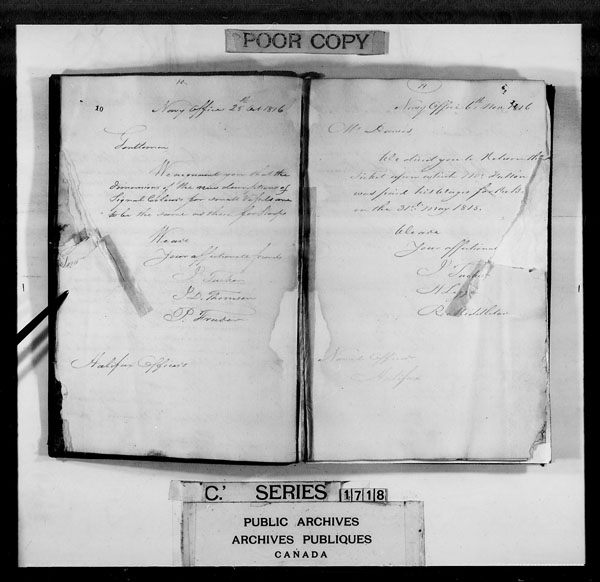 POOR COPY
10
Navy Office 28th Oct 1816
Gentlemen
We acquaint you that the
dimensions of the new descriptions of
Signal Colours for small Vessels are
to be the same as those for Sloops
We are
Your affectionate friends
J. Tucker
J. D. Thomson
P. Fraser
Halifax Officers
Navy Office 6th Nov 1816
We direct you to Return the
Ticket upon which
was paid his Wages for
on the 31st May 1815.
We are
Your affectionate
J. Tucker
Naval Officer
Halifax
C. SERIES 1718
PUBLIC ARCHIVES
ARCHIVES PUBLIQUES
CANADA